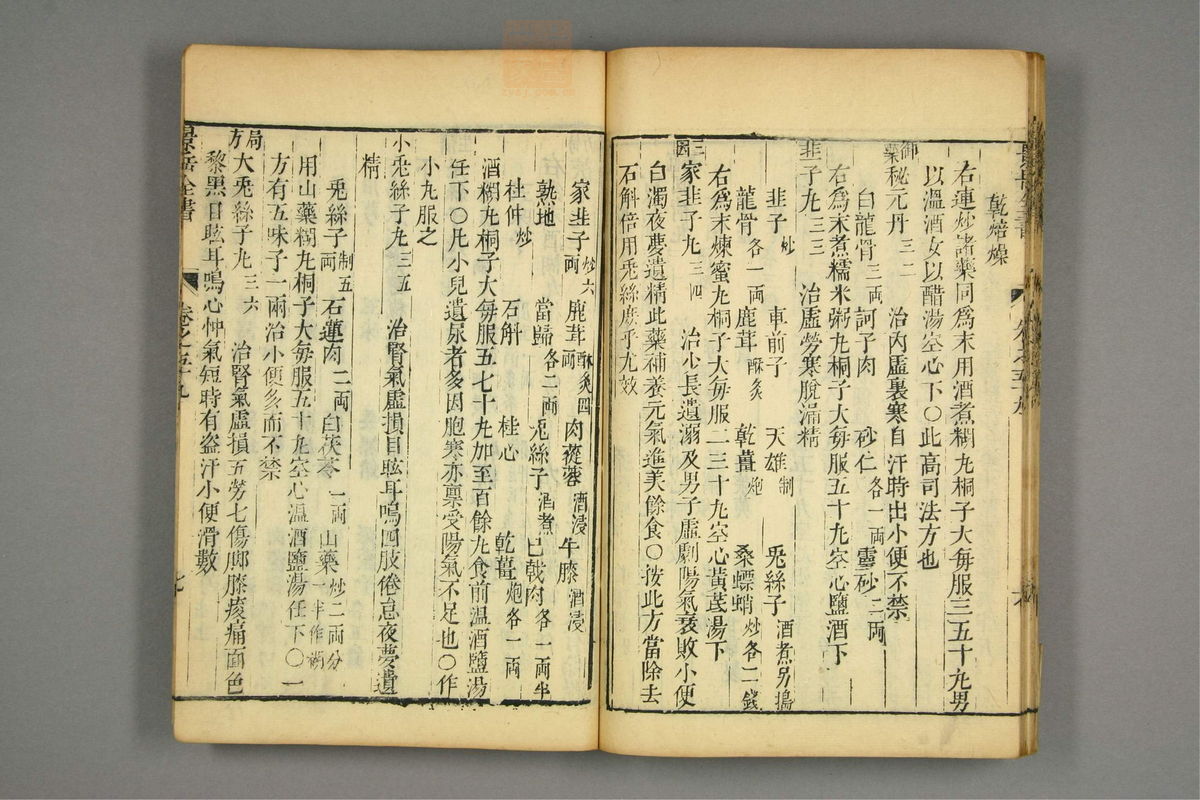 乾焙燥
右連炒諸藥同為末用酒煮糊丸桐子大每服三五十丸男
以溫酒女以醋湯空心下〇此高司法方也
御藥秘元丹三二　治內虛裏寒自汗時出小便不禁
白龍骨三兩　訶子肉　砂仁各一兩　靈砂二兩
右為末煮糯米粥丸桐子大每服五十丸空心鹽酒下
韭子丸三三　治虛勞寒脫漏精
韭子炒　車前子　天雄制　兎絲子酒煮另搗
龍骨各一兩　鹿茸酥炙　乾薑炮　桑螵蛸炒各二錢
右為末煉蜜丸桐子大每服二三十丸空心黃芪湯下
三因家韭子丸三四　治少長遺溺及男子虛劇陽氣衰敗小便
白濁夜夢遺精此藥補養元氣進美餘食〇按此方當除去
石斛倍用兎絲庶乎尤效
家韭子炒六兩　鹿茸酥炙四兩　肉蓯蓉酒浸　牛膝酒浸
熟地　當歸各二兩　兎絲子酒煮　巴戟肉各一兩半
杜仲炒　石斛　桂心　乾薑炮各一兩
酒糊丸桐子大每服五七十丸加至百餘丸食前溫酒鹽湯
任下〇凡小兒遺尿者多因胞寒亦稟受陽氣不足也〇作
小丸服之
小兎絲子丸三五　治腎氣虛損目眩耳鳴四肢倦怠夜夢遺
精
兎絲子制五兩　石蓮肉二兩　白茯苓一兩　山藥炒二兩分一半作糊
用山藥糊丸桐子大每服五十丸空心溫酒鹽湯任下〇一
方有五味子一兩治小便多而不禁
局方大兎絲子丸三六　治腎氣虛損五勞七傷脚膝痠痛面色
黎黑目眩耳鳴心忡氣短時有盜汗小便滑數
景岳全書　卷之五十九　七